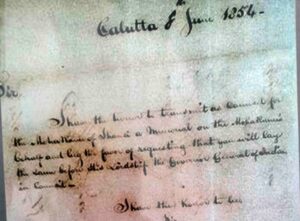 Calcutta 8th June 1854.
Sir
I have the honor to transmit as Counsel for
the Maharanee of Jhansi a Memorial on the Maharanee's
behalf and beg the favor of requesting that you will lay
the same before His Lordship the Governor General of India
in Council.
I have the honor to be